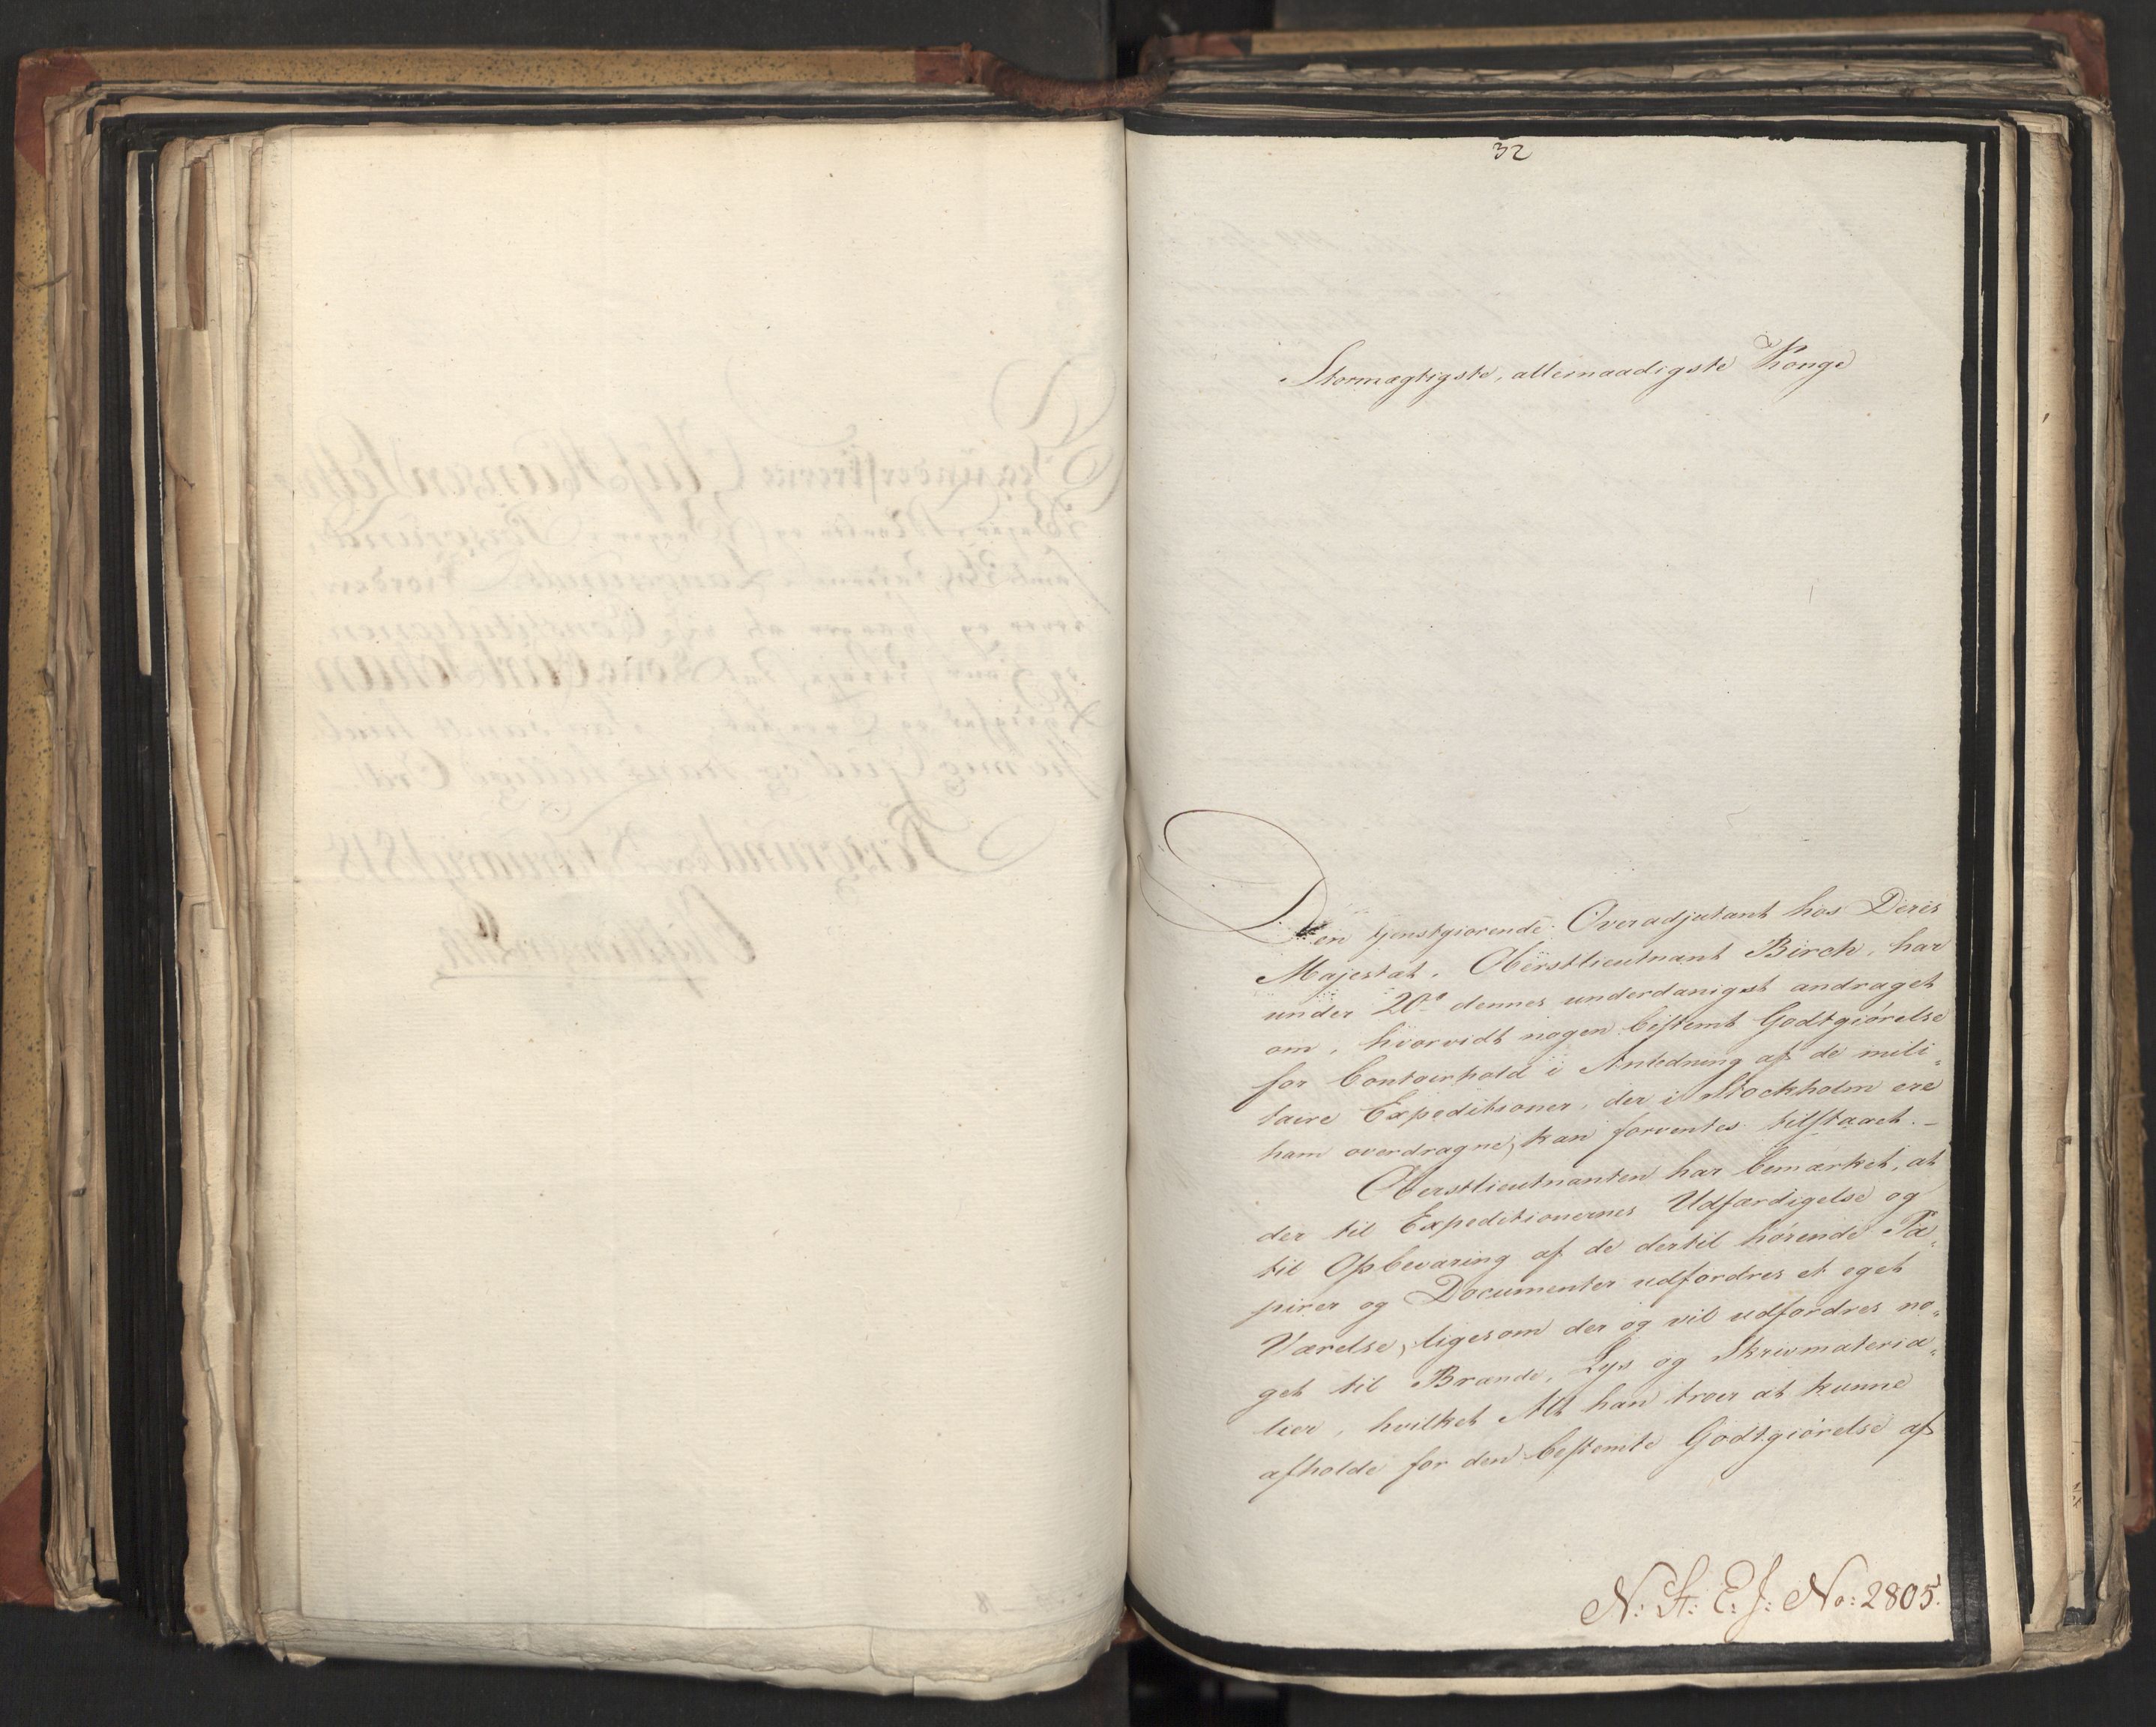 32
Stormægtigste, allernaadigste Konge
Den tjenstgiørende Overadjutant hos Deres
Majestæt, Oberstlieutnant Birch, har
under 20de dennes underdanigst andraget
om, hvorvidt nogen bestemt Godtgiørelse
for Contoirhold i Anledning af de mili-
taire Expeditioner, der i Stockholm ere
ham overdragne, kan forventes tilstaaet. –
Oberstlieutnanten har bemærket, at
der til Expeditionernes Udfærdigelse og
til Opbevaring af de dertil hørende Pa-
pirer og Documenter udfordres et eget
Værelse, ligesom der og vil udfordres no-
get til Brænde, Lys og Skrivmateria-
lier, hvilket Alt han troer at kunne
afholde for den bestemte Godtgiørelse af
N: St: E: J: No: 2805.